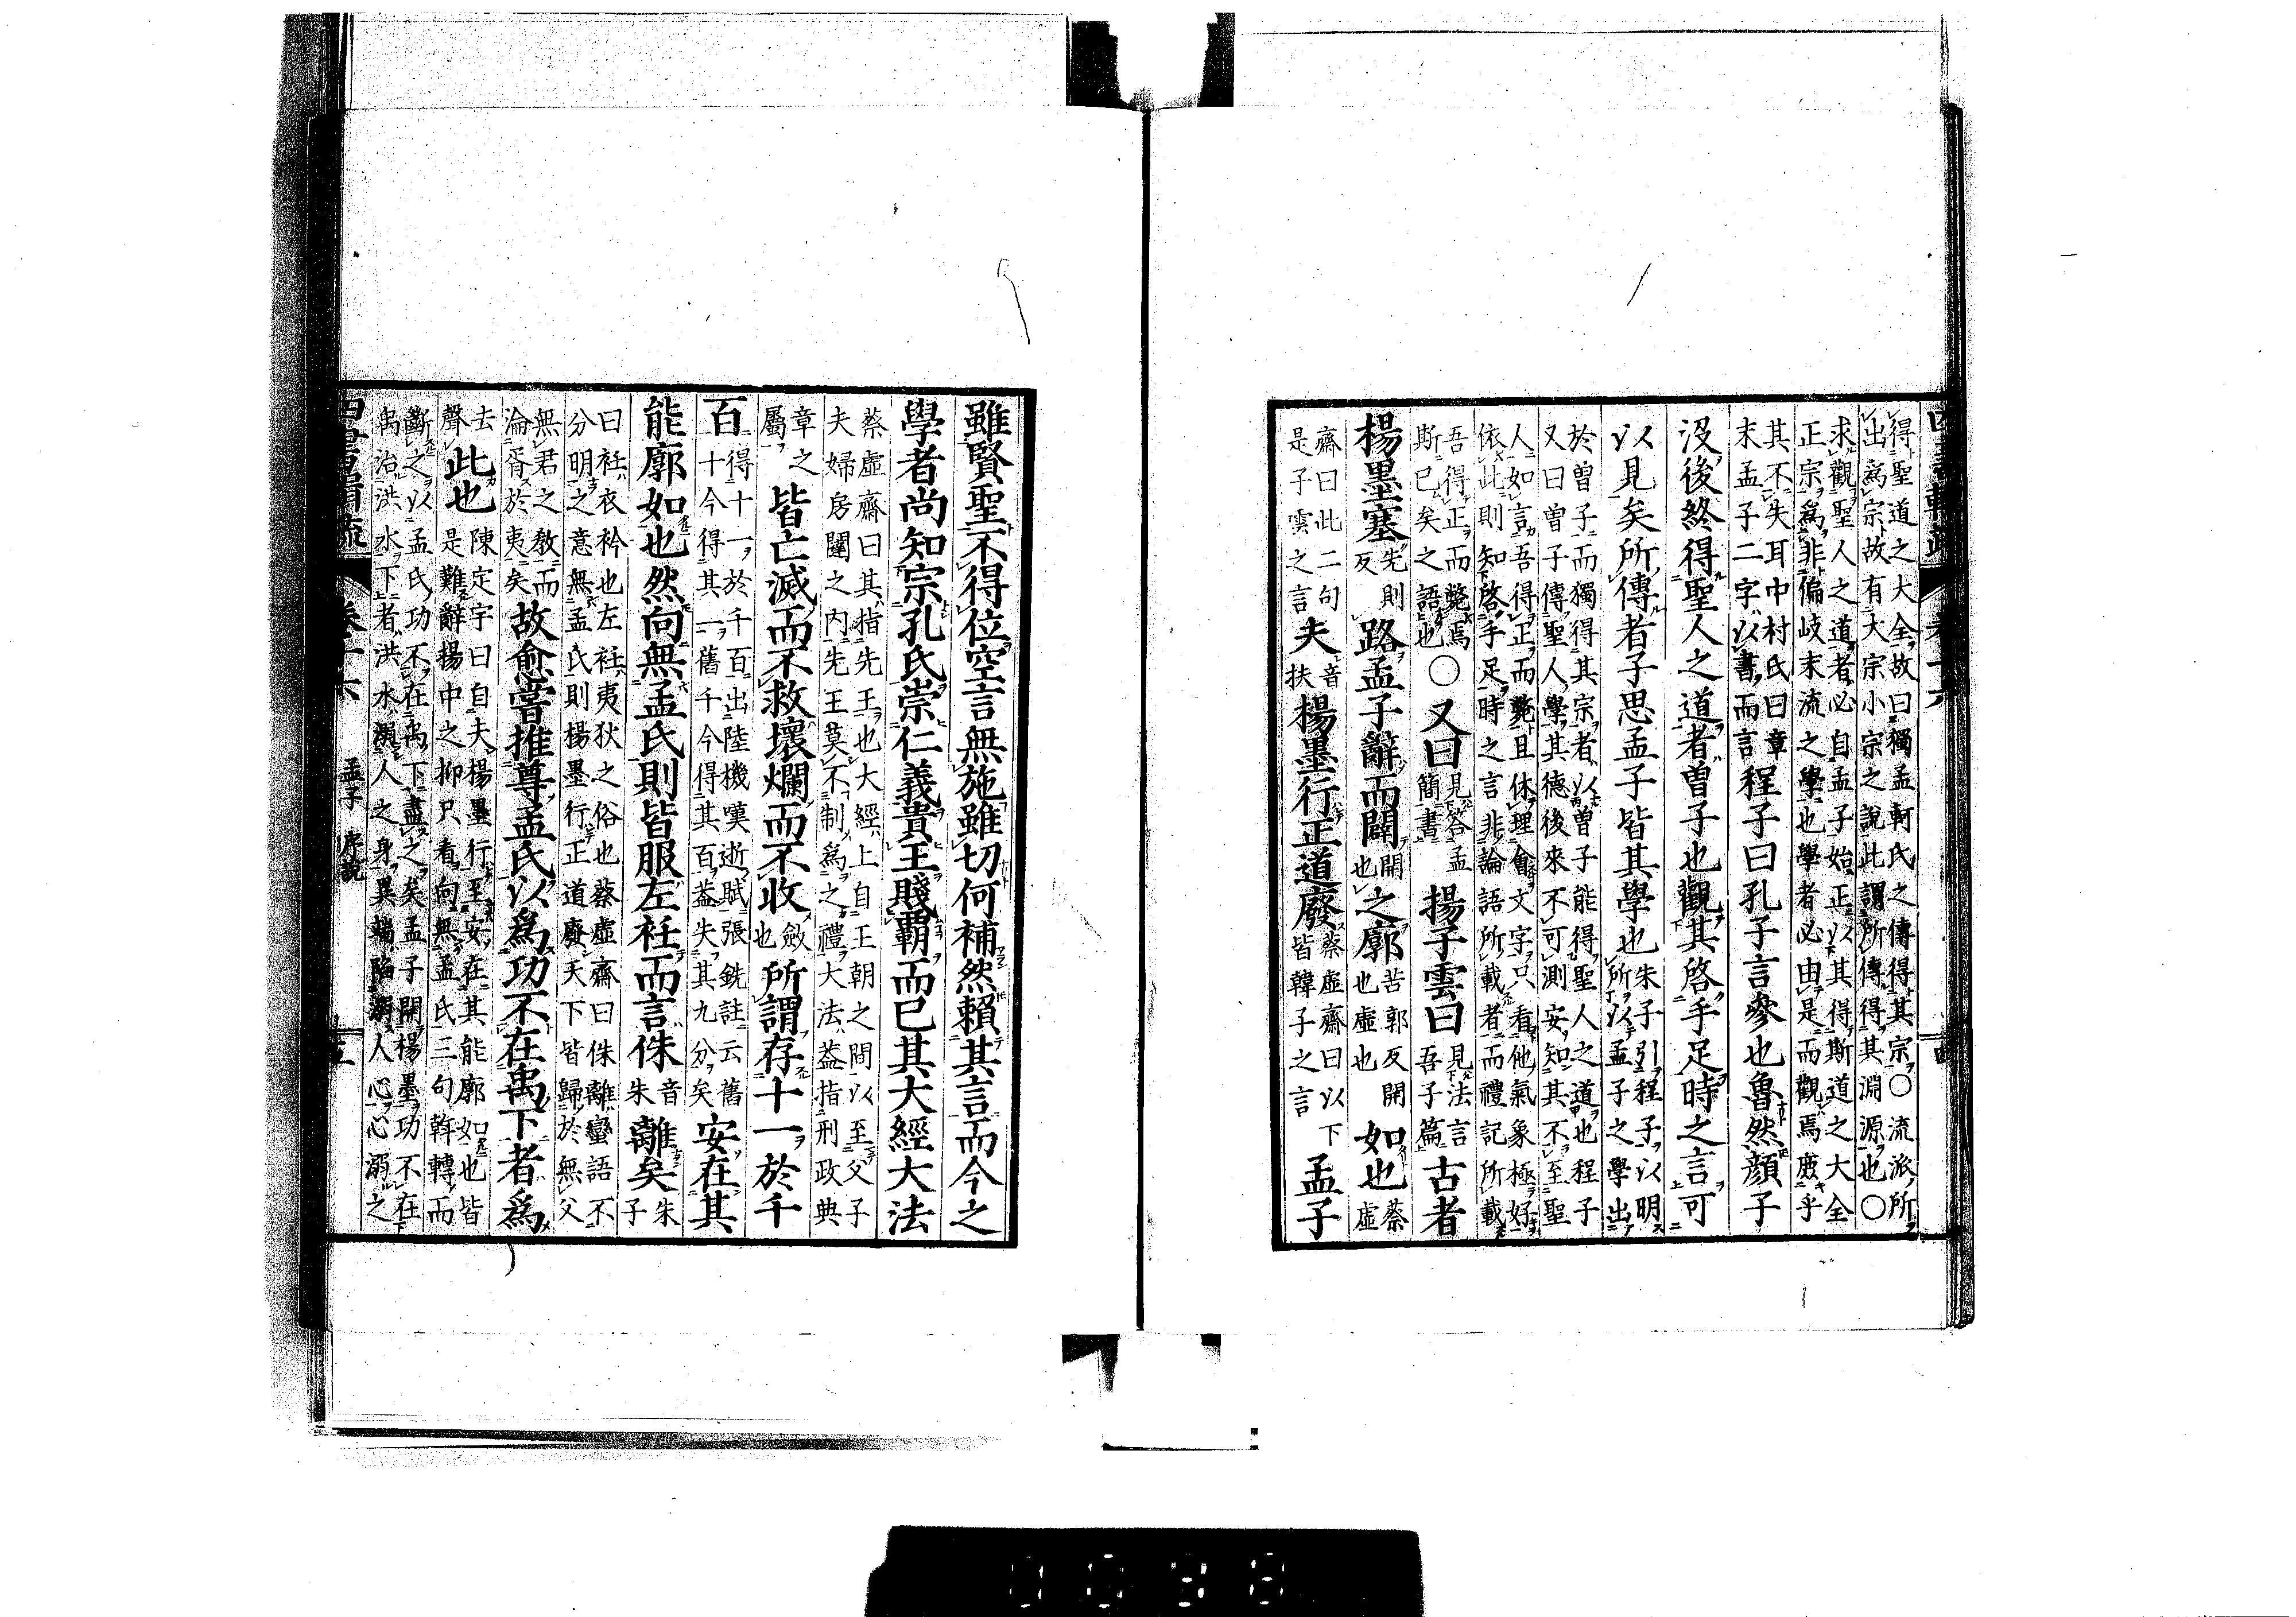 得聖道之大全故曰獨孟軻氏之傳得其宗○流派所
出爲宗故有大宗小宗之說此謂所傳得其淵源也○
求觀聖人之道者必自孟子始正以其得斯道之大全
正宗爲非偏岐末流之學也學者必由是而觀焉庶乎
其不失耳中村氏曰章
末孟子二字以書而言程子曰孔子言參也魯然顏子
沒後終得聖人之道者曽子也觀其啓手足時之言可
以見矣所傳者子思孟子皆其學也
朱子引程子以明
所以孟子之學出
於曽子而獨得其宗者以曽子能得聖人之道也程子
又曰曽子傳聖人學其德後來不可測安知其不至聖
人如言吾得正而斃且休理會文字只看他氣象極好
依此則知啓手足時之言非論語所載者而禮記所載
吾得正而斃焉
斯已矣之語也○又曰
見答孟
簡書
揚子雲曰
見法言
吾子篇
古者
楊墨塞
先則
反
路孟子辭而闢
開
也
之廓
苦郭反開
也虛也
如也
蔡
虛
齋曰此二句
是子雲之言夫
音
扶
楊墨行正道廢
蔡虛齋曰以下
皆韓子之言
孟子
四書 卷十六 四
雖賢聖不得位空言無施雖切何補然賴其言而今之
學者尚知宗孔氏崇仁義貴王賤霸而已其大經大法
蔡虛齋曰其指先王也大經上自王朝之間以至父子
夫婦房闥之內先王莫不制爲之禮大法蓋指刑政典
章之
屬
皆亡滅而不救壞爛而不收
斂
也
所謂存十一於千
百
得十一於千百出陸機嘆逝賦張銑註云舊
十今得其一舊千今得其百蓋失其九分矣
安在其
能廓如也然向無孟氏則皆服左衽而言侏
音
朱
離矣
朱
子
曰衽衣衿也左衽夷狄之俗也蔡虛齋曰侏離蠻語不
分明之意無孟氏則楊墨行正道廢天下皆歸於無父
無君之教而
淪胥於夷矣
故愈嘗推尊孟氏以爲功不在禹下者爲
去
聲
此也
陳定宇曰自夫楊墨行至安在其能廓如也皆
是難辭楊中之抑只看向無孟氏三句斡轉而
斷之以孟氏功不在禹下盡之矣孟子闢楊墨功不在
禹治洪水下者洪水溺人之身異端陷溺人心心溺之
卷十六 孟子 序說 五